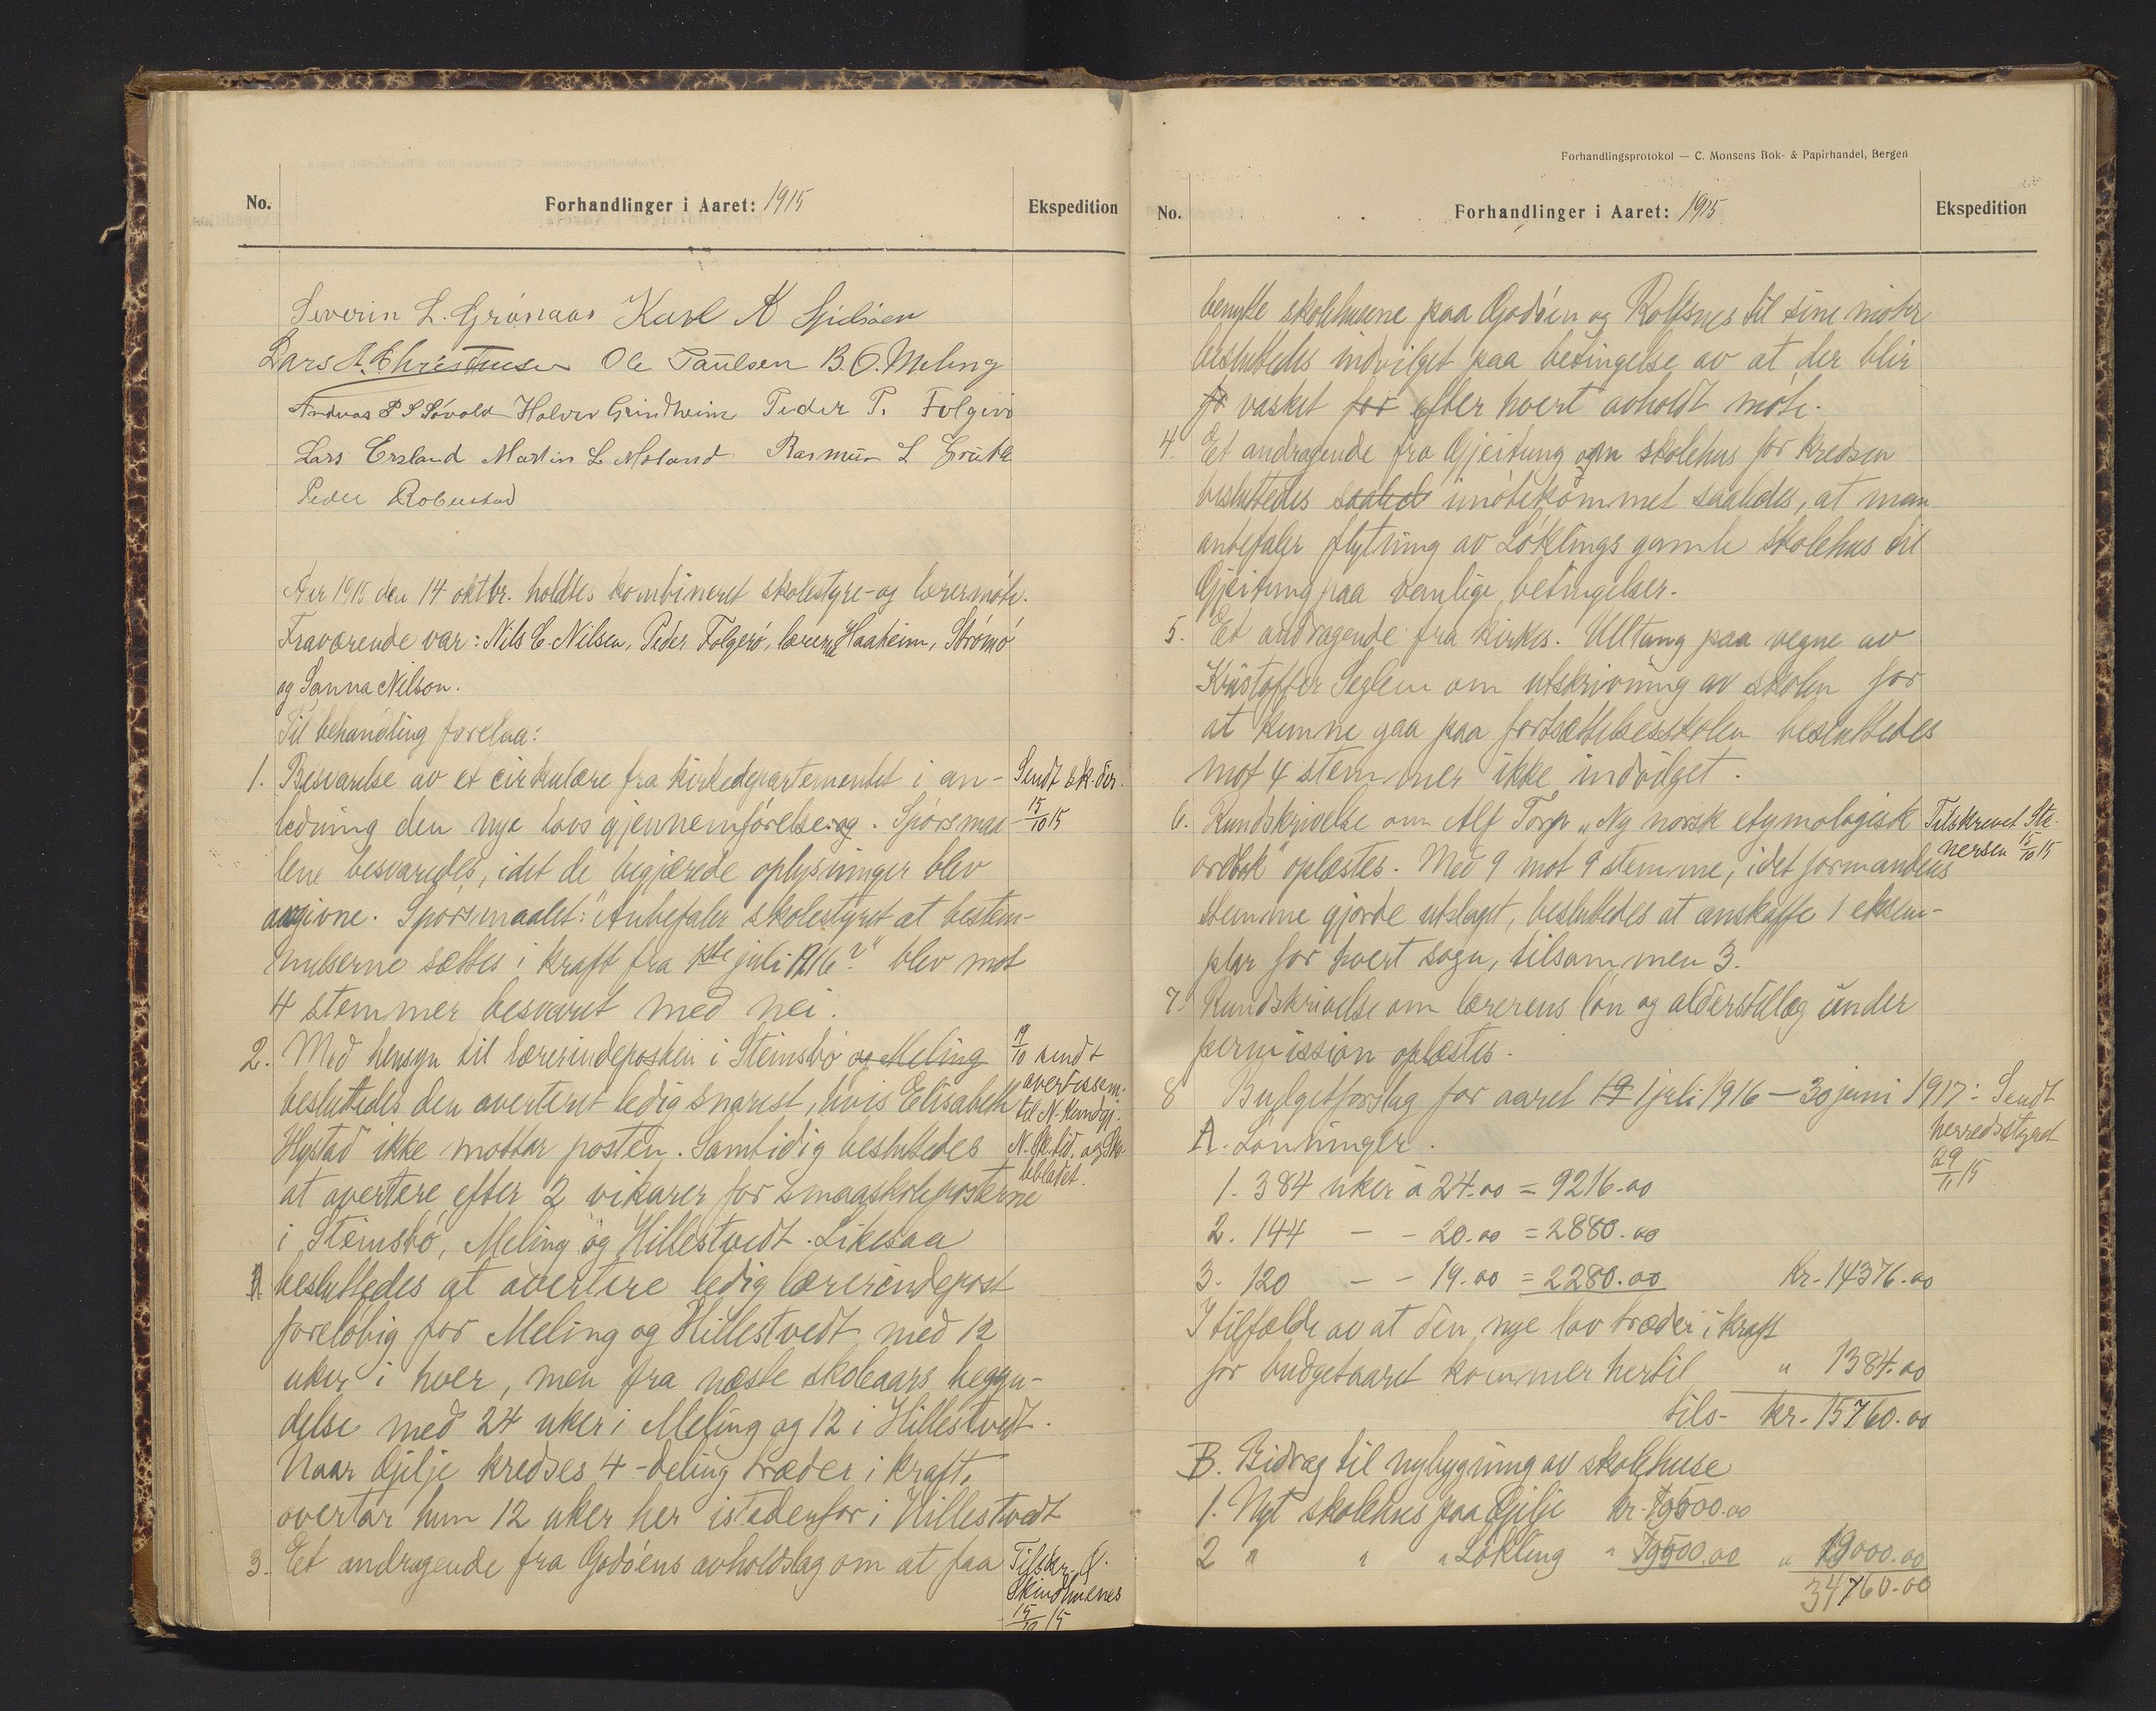 No.
Forhandlinger i Aaret: 1915
Ekspedition
Severin L. Grönaas Karl K
Lars A. Christensen Ole Paulsen B. O. Meling
Andreas P S Halvor Grindheim Peder P. Folgerö
Lars Ersland Martin L Møland Rasmus L
Peder
Aar 1915 den 14 oktbr. holdtes kombineret skolestyre- og lærermöte.
Fraværende var: Nils C. Nilsen, Peder Folgerö, lærerne Haaheim, Strömö
og Sanna Nilson.
Til behandling forelaa:
1. Besvarelse av et cirkulære fra kirkedepartementet i an-
ledning den nye lovs gjennemförelse og. Spörsmaa-
lene besvaredes, idet de begjærede oplysninger blev
avgivne. Spörsmaalet: "Anbefaler skolestyret at bestem-
melserne sættes i kraft fra 1ste juli 1916?" blev mot
4 stemmer besvaret med nei.
Sendt sk.dir.
15/10 15
2. Med hensyn til lærerindeposten i Steinsbö og Meling
besluttedes den avertert ledig snarest, hvis Elisabeth
Hystad ikke mottar posten. Samtidig besluttedes
at avertere efter 2 vikarer for smaaskoleposterne
i Steinsbö, Meling og Hillestvedt. Likesaa
besluttedes at avertere ledig lærerindepost
forelöbig for Meling og Hillestvedt med 12
uker i hver, men fra næste skoleaars begyn-
delse med 24 uker i Meling og 12 i Hillestvedt.
Naar Gjilje kredses 4-deling træder i kraft,
overtar hun 12 uker her istedenfor i Hillestvedt
19/10 sendt
avertissem.
til N. Kundgj.
N. Sk.tid. og Sko-
lebladet.
3. Et andragende fra Godöens avholdslag om at faa
Tilskr. O.
Skindhuenes
15/10 15
Forhandlingsprotokol — C. Monsens Bok- & Papirhandel, Bergen
No.
Forhandlinger i Aaret: 1915
Ekspedition
benytte skolehusene paa Godöen og Rolfsnes til sine möter
besluttedes indvilget paa betingelse av at der blir
fo vasket for efter hvert avholdt möte.
4. Et andragende fra Gjeitung om skolehus for kredsen
besluttedes saaled imötekommet saaledes, at man
anbefaler flytning av Löklings gamle skolehus til
Gjeitung paa vanlige betingelser.
5. Et andragende fra kirkes. Ulltang paa vegne av
Kristoffer Seglem om utskrivning av skolen for
at kunne gaa paa fortsættelsesskolen besluttedes
mot 4 stemmer ikke indvilget.
6. Rundskrivelse om Alf Torp „Ny norsk etymologisk
ordbok" oplæstes. Med 9 mot 9 stemme, idet formandens
stemme gjorde utslaget, besluttedes at anskaffe 1 eksem-
plar for hvert sogn, tilsammen 3.
Tilskrevet Ste-
nersen 15/10 15
7. Rundskrivelse om lærerens lön og alderstillæg under
permission oplæstes.
8 Budgetforslag for aaret 19 1 juli 1916 – 30 juni 1917:
Sendt
herredsstyret
29/11 15
A. Lönninger.
1. 384 uker á 24.00 = 9216.00
2. 144 – - 20.00 = 2880.00
3. 120 – - 19.00 = 2280.00 Kr. 14376.00
I tilfælde av at den nye lov træder i kraft
for budgetaaret kommer hertil " 1384.00
tils- kr. 15760.00
B. Bidrag til nybygning av skolehuse
1. Nyt skolehus paa Gjilje kr. 9500.00
2 " " " Lökling " 9500.00 " 19000.00
34760.00